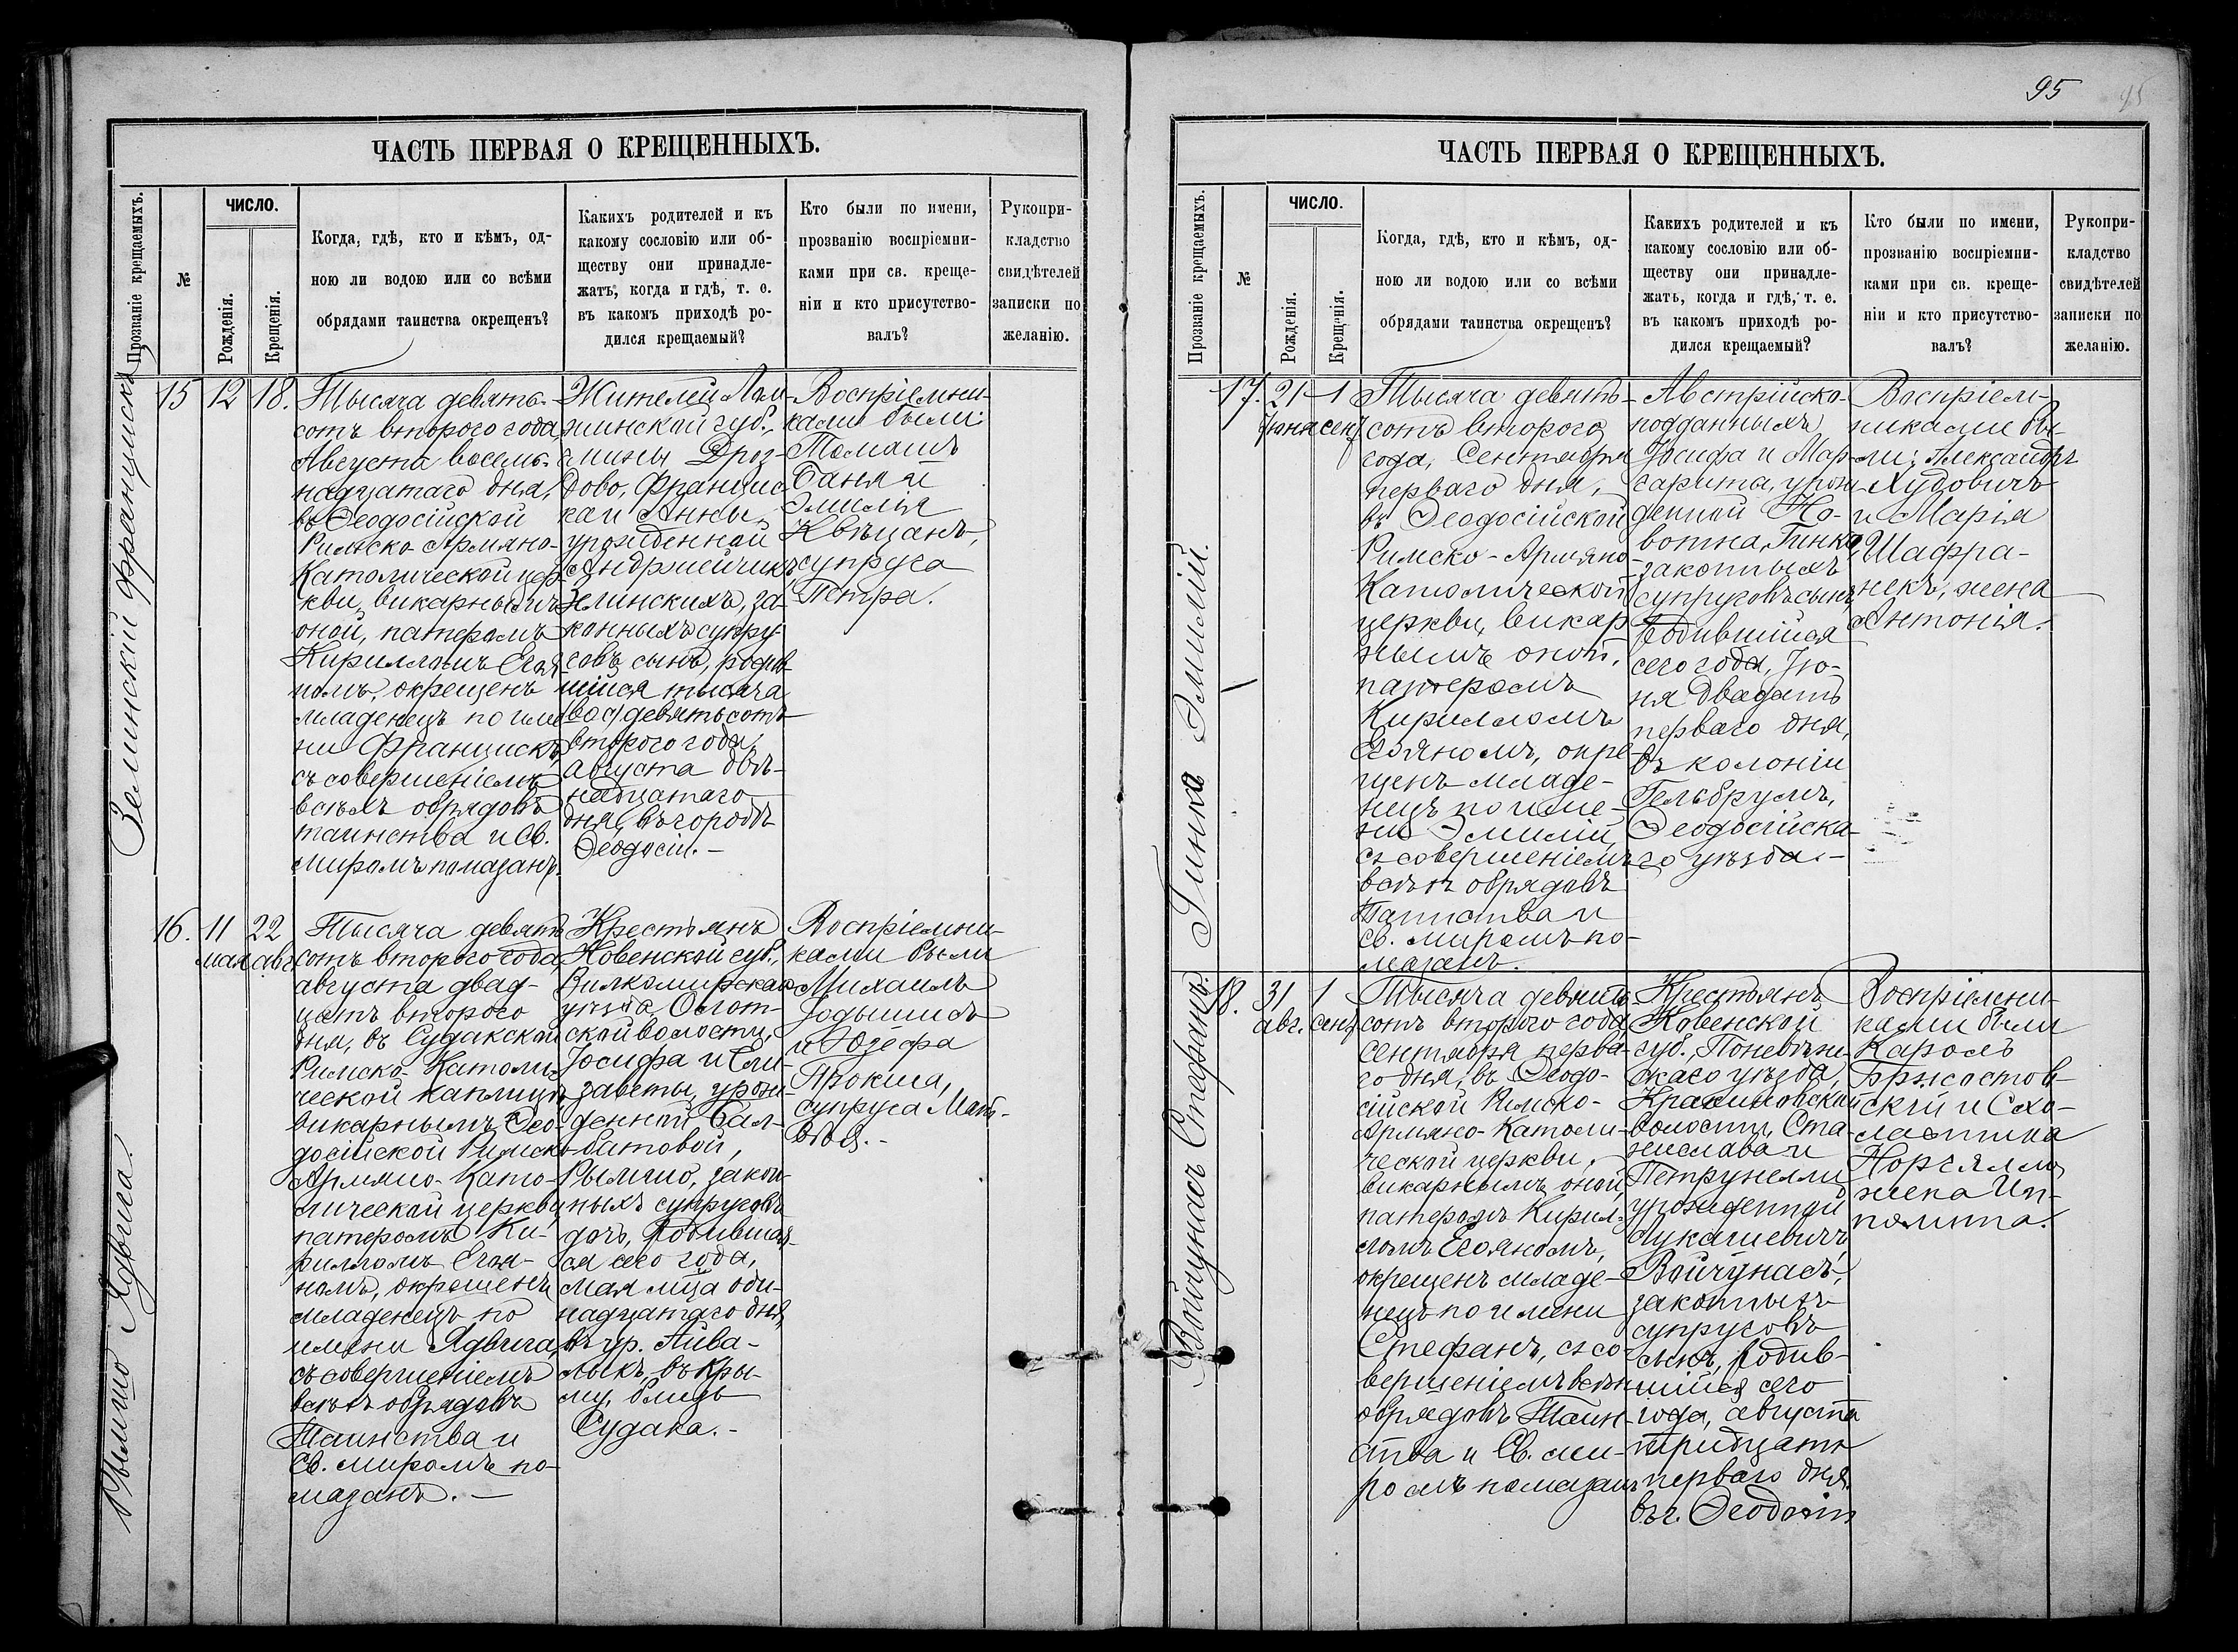 95
ЧАСТЬ ПЕРВАЯ О КРЕЩЕННЫХЪ.
Прозваніе крещаемыхъ.
№
ЧИСЛО.
Рожденія.
Крещенія.
Когда, гдѣ, кто и кѣмъ, од-
ною ли водою или со всѣми
обрядами таинства окрещенъ?
Какихъ родителей и къ
какому сословію или об-
ществу они принадле-
жатъ, когда и гдѣ, т. е.
въ какомъ приходѣ ро-
дился крещаемый?
Кто были по имени,
прозванію воспріемни-
ками при св. креще-
ніи и кто присутство-
валъ?
Рукопри-
кладство
свидѣтелей
записки по
желанію.
Зелинскій Францискъ
15
12
18.
Тысяча девять-
сотъ второго года
Августа восем-
надцатаго дня,
въ Ѳеодосійской
Римско-Армяно-
Католической цер-
кви, викарнымъ
оной, патеромъ
Кирилломъ Егоя-
номъ, окрещенъ
младенецъ по име-
ни Францискъ,
съ совершеніемъ
всѣхъ обрядовъ
таинства и Св.
миромъ помазанъ.
Жителей Лом-
жинской губ.,
гмины Дроз-
дово, Францис-
ка и Анны,
урожденной
Андржейчикъ
Зелинскихъ, за-
конныхъ супру-
говъ сынъ, родив-
шійся тысяча
девятьсотъ
второго года,
Августа двѣ-
надцатаго
дня, въ городѣ
Ѳеодосіи.-
Воспріемни-
ками были:
Томашъ
Баня и
Эмилія
Квѣцанъ,
супруга
Петра.
Рымшо Ядвига.
16.
11
мая
22
авг.
Тысяча девять
сотъ второго года
августа двад-
цать второго
дня, въ Судакской
Римско-Католи-
ческой каплицѣ
викарнымъ Ѳео-
досійской Римско
Армяно-Като-
лической церкви
патеромъ Ки-
рилломъ Егоя-
номъ, окрещенъ
младенецъ по
имени Ядвига,
съ совершеніемъ
всѣхъ обрядовъ
Таинства и
Св. миромъ по-
мазанъ.-
Крестьянъ
Ковенской губ.,
Вилкомирскаго
уѣзда,
ской волости,
Іосифа и Ели-
заветы, урож-
денной Бал-
битовой,
Рымшо, закон-
ныхъ супруговъ
дочь, родившая-
ся сего года,
мая мѣсяца оди-
надцатаго дня,
въ ур. Айва-
лыкъ, въ Кры-
му, близь
Судака.-
Воспріемни-
ками были
Михаилъ
Іодышисъ
и Юзефа
Прокша,
супруга Мат-
вѣя.-
95
ЧАСТЬ ПЕРВАЯ О КРЕЩЕННЫХЪ.
Прозваніе крещаемыхъ.
№
ЧИСЛО.
Рожденія.
Крещенія.
Когда, гдѣ, кто и кѣмъ, од-
ною ли водою или со всѣми
обрядами таинства окрещенъ?
Какихъ родителей и къ
какому сословію или об-
ществу они принадле-
жатъ, когда и гдѣ, т. е.
въ какомъ приходѣ ро-
дился крещаемый?
Кто были по имени,
прозванію воспріемни-
ками при св. креще-
ніи и кто присутство-
валъ?
Рукопри-
кладство
свидѣтелей
записки по
желанію.
Гинка Эмилій.
17.
21
Іюня
1
сент
Тысяча девять-
сотъ второго
года, Сентября
перваго дня,
въ Ѳеодосійской
Римско-Армяно
Католической
церкви, викар
нымъ оной,
патеромъ
Кирилломъ
Егояномъ, окре-
щенъ младе-
нецъ по име-
ни Эмилій,
съ совершеніемъ
всѣхъ обрядовъ
Таинства и
св. миромъ по-
мазанъ.
Австрійско-
подданныхъ
Іосифа и Мар-
гарита, урож-
денной Но-
вотна, Гинка,
законныхъ
супруговъ сынъ,
родившійся
сего года, Ію-
ня двадать
перваго дня,
въ колоніи
Гельбрумъ,
Ѳеодосійска-
го уѣзда.-
Воспріем-
никами бы-
ли: Александръ
Худовичъ
и Марія
Шафра-
некъ, жена
Антонія.
Войчунасъ Стефанъ.
18.
31
авг.
1
сент
Тысяча девять
сотъ второго года
Сентября перва-
го дня, въ Ѳеодо-
сійской Римско-
Армяно-Католи-
ческой церкви,
викарнымъ оной,
патеромъ Кирил-
ломъ Егояномъ,
окрещенъ младе-
нецъ по имени
Стефанъ, съ со-
вершеніемъ всѣхъ
обрядовъ Таин-
ства и Св. ми-
ромъ помазанъ
Крестьянъ
Ковенской
губ. Поневѣж-
скаго уѣзда,
волости, Ста-
нислава и
Петрунелли
урожденной
Лукашевичъ,
Войчунасъ,
законныхъ
супруговъ
сынъ, родив-
шійся сего
года, августа
тридцать
перваго дня
въ г. Ѳеодосіи
Воспріемни-
ками были
Кароль
Бржостов-
скій и Схо-
ластика
Норгялло,
жена Ип-
полита.